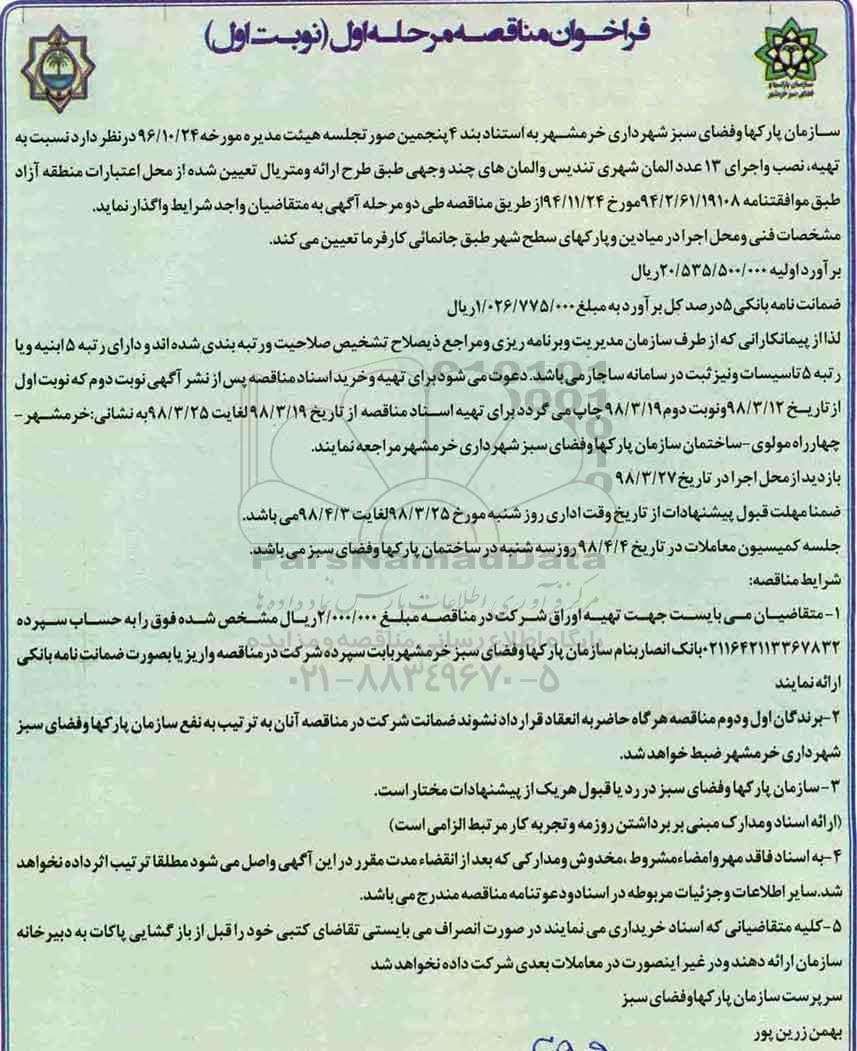 فراخوان مناقصه مرحله اول (نوبت اول)
سازمان پارکها و فضای سبز خرمشهر
سازمان پارکها وفضای سبز شهرداری خرمشهر به استناد بند ۴ پنجمین صورتجلسه هیئت مدیره مورخه ۹۶/۱۰/۲۴ درنظر دارد نسبت به
تهیه، نصب واجرای ۱۳ عدد المان شهری تندیس والمان های چند وجهی طبق طرح ارائه ومتریال تعیین شده از محل اعتبارات منطقه آزاد
طبق موافقتنامه ۹۴/۲/۶۱/۱۹۱۰۸مورخ ۹۴/۱۱/۲۴از طریق مناقصه طی دو مرحله آگهی به متقاضیان واجد شرایط واگذار نماید.
مشخصات فنی ومحل اجرا در میادین وپارکهای سطح شهر طبق جانمائی کارفرما تعیین می کند.
برآورد اولیه ۲۰/۵۳۵/۵۰۰/۰۰۰ریال
ضمانت نامه بانکی ۵درصد کل برآورد به مبلغ ۱/۰۲۶/۷۷۵/۰۰۰ریال
لذا از پیمانکارانی که از طرف سازمان مدیریت وبرنامه ریزی ومراجع ذیصلاح تشخیص صلاحیت ورتبه بندی شده اند و دارای رتبه ۵ ابنیه ویا
رتبه ۵ تاسیسات ونیز ثبت در سامانه ساجار می باشد. دعوت می شود برای تهیه وخرید اسناد مناقصه پس از نشر آگهی نوبت دوم که نوبت اول
از تاریخ ۹۸/۳/۱۲ونوبت دوم ۹۸/۳/۱۹چاپ می گردد برای تهیه اسناد مناقصه از تاریخ ۹۸/۳/۱۹لغایت ۹۸/۳/۲۵به نشانی:خرمشهر-
چهارراه مولوی-ساختمان سازمان پارکها وفضای سبز شهرداری خرمشهر مراجعه نمایند.
بازدید از محل اجرا در تاریخ۹۸/۳/۲۷
ضمنا مهلت قبول پیشنهادات از تاریخ وقت اداری روز شنبه مورخ ۹۸/۳/۲۵لغایت ۹۸/۴/۳می باشد.
جلسه کمیسیون معاملات در تاریخ ۹۸/۴/۴روز سه شنبه در ساختمان پارکها وفضای سبز می باشد.
ParsNamadData
مرکز فرآوری اطلاعات پارس نماد داده ها
شرایط مناقصه:
۱-متقاضیان می بایست جهت تهیه اوراق شرکت در مناقصه مبلغ ۲/۰۰۰/۰۰۰ریال مشخص شده فوق را به حساب سپرده
پایگاه اطلاع رسانی مناقصه و مزایده
۰۲۱۱۶۴۲۱۱۳۳۶۷۸۳۲بانک انصار بنام سازمان پارکها وفضای سبز خرمشهر بابت سپرده شرکت در مناقصه واریز یا بصورت ضمانت نامه بانکی
۰۲۱-۸۸۳۴۹۶۷۰-۵
ارائه نمایند
۲-برندگان اول ودوم مناقصه هرگاه حاضر به انعقاد قرارداد نشوند ضمانت شرکت در مناقصه آنان به ترتیب به نفع سازمان پارکها وفضای سبز
شهرداری خرمشهر ضبط خواهد شد.
۳-سازمان پارکها وفضای سبز در رد یا قبول هریک از پیشنهادات مختار است.
(ارائه اسناد ومدارک مبنی بر برداشتن روزمه وتجربه کار مرتبط الزامی است)
۴-به اسناد فاقد مهروامضاءمشروط ،مخدوش ومدارکی که بعد از انقضاء مدت مقرر در این آگهی واصل می شود مطلقا ترتیب اثر داده نخواهد
شد.سایر اطلاعات وجزئیات مربوطه در اسنادودعوتنامه مناقصه مندرج می باشد.
۵-کلیه متقاضیانی که اسناد خریداری می نمایند در صورت انصراف می بایستی تقاضای کتبی خود را قبل از باز گشایی پاکات به دبیرخانه
سازمان ارائه دهند ودر غیر اینصورت در معاملات بعدی شرکت داده نخواهد شد
سرپرست سازمان پارکهاوفضای سبز
بهمن زرین پور